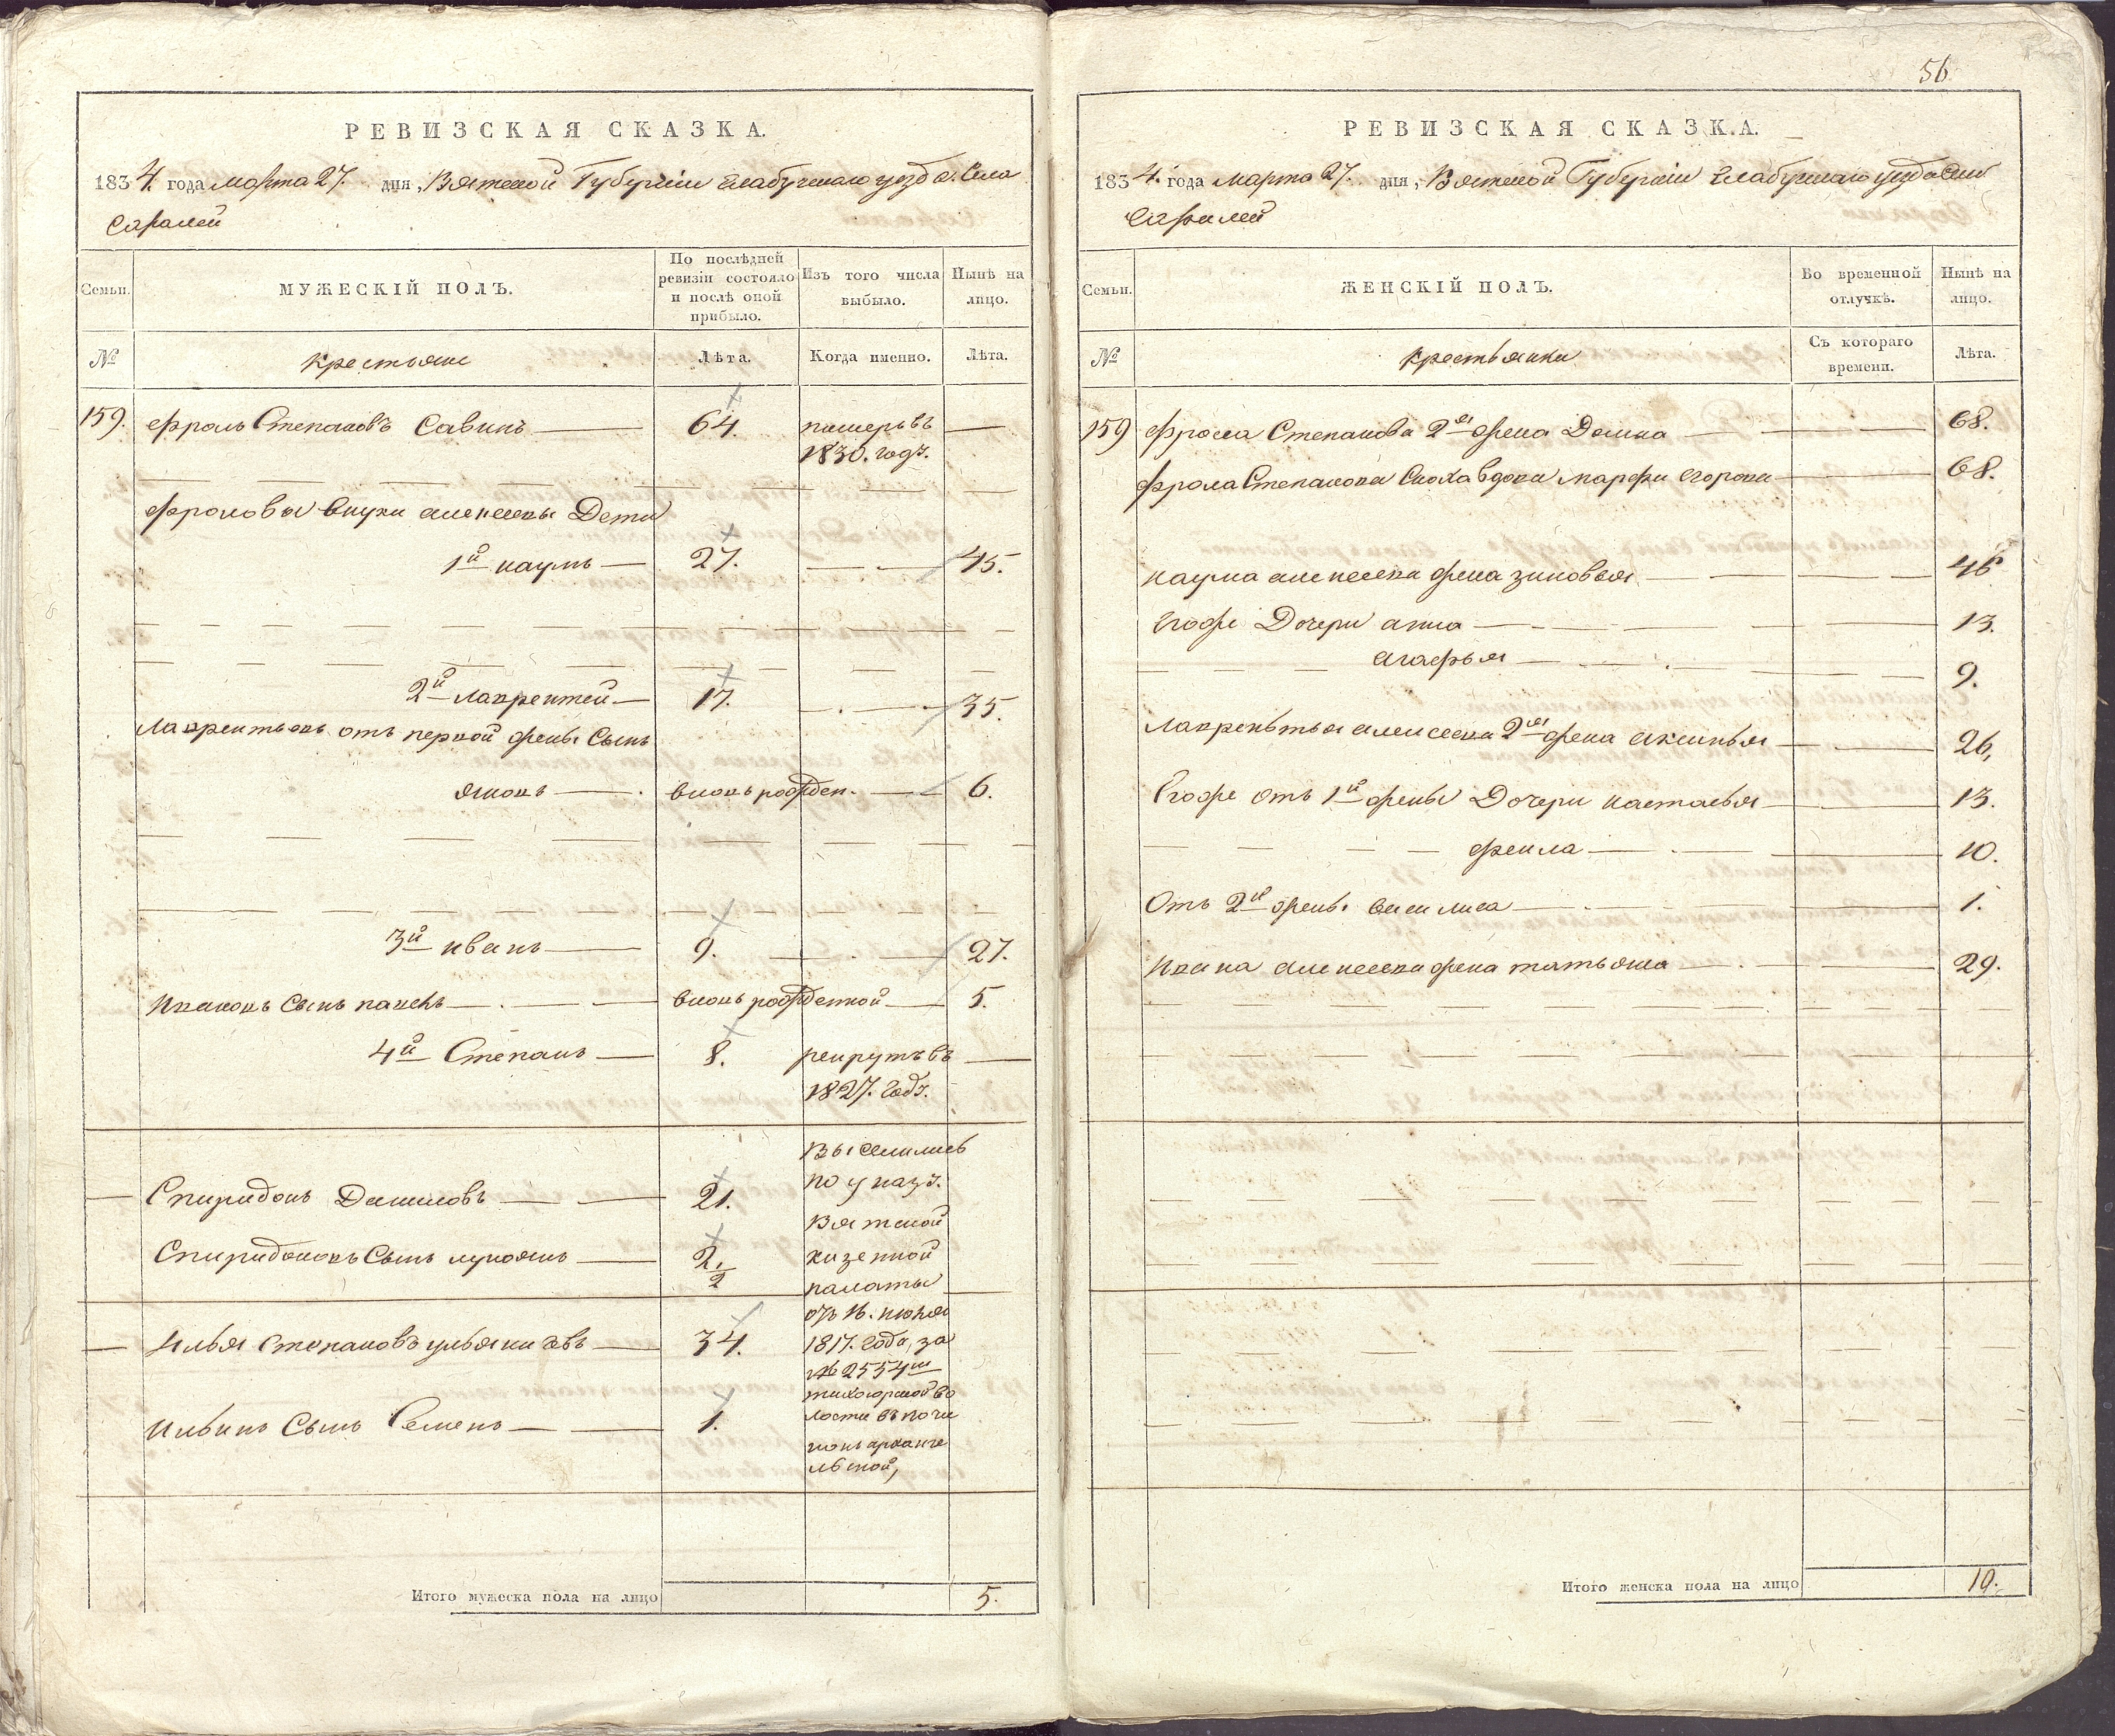 РЕВИЗСКАЯ СКАЗКА.
1834. года марта 27. дня, Вятской Губернiи Елабужскаго уезда. Села
Саралей
Семьи.
МУЖЕСКІЙ ПОЛЪ.
По послѣдней ревизіи состояло и послѣ оной прибыло.
Изъ того числа выбыло.
Нынѣ на лицо.
№
Крестьяне
Лѣта.
Когда именно.
Лѣта.
159. Фролъ Степановъ Савинъ 64. померъ въ
1830. годз.
Фроловы внуки алексеевы Дети
1й наумъ 27. 45.
2й лаврентей 17. 35.
Лаврентьевъ отъ первой жены Сынъ
яковъ вновь рожден. 6.
3й иванъ 9. 27.
Ивановъ Сынъ павелъ вновь рожденной 5.
4й Степанъ 8. рекрутъ въ
1827. годз.
Выселились
по указз.
Спиридонъ Даниловъ 21.
Вятской
Спиридоновъ Сынъ лукоянъ 2. 1/2 казенной
палаты
отъ 16. июня
Илья Степановъ 34. 1817. года, за
№ 2554м
тихогорской во
Ильинъ Сынъ Семенъ 1. лости въ почи
нокъ арханге
льской,
Итого мужеска пола на лицо 5.
56
РЕВИЗСКАЯ СКАЗКА.
1834. года марта 27. дня, Вятской Губернiи Елабужскаго уезда Села
Саралей
Семьи.
ЖЕНСКІЙ ПОЛЪ.
Во временной отлучкѣ.
Нынѣ на лицо.
№
Крестьянки
Съ котораго времени.
Лѣта.
159 Фрола Степанова 2я жена Домна 68.
Фрола Степанова Сноха вдова марфа егорова 68.
наума алексеева жена зиновья 46
Егоже Дочери анна 13.
агафья 9.
Лаврентья алексеева 2я жена аксинья 26,
Егоже отъ 1й жены Дочери настасья 13.
фекла 10.
Отъ 2й жены василиса 1.
Ивана алексеева жена татьяна 29.
Итого женска пола на лицо 10.